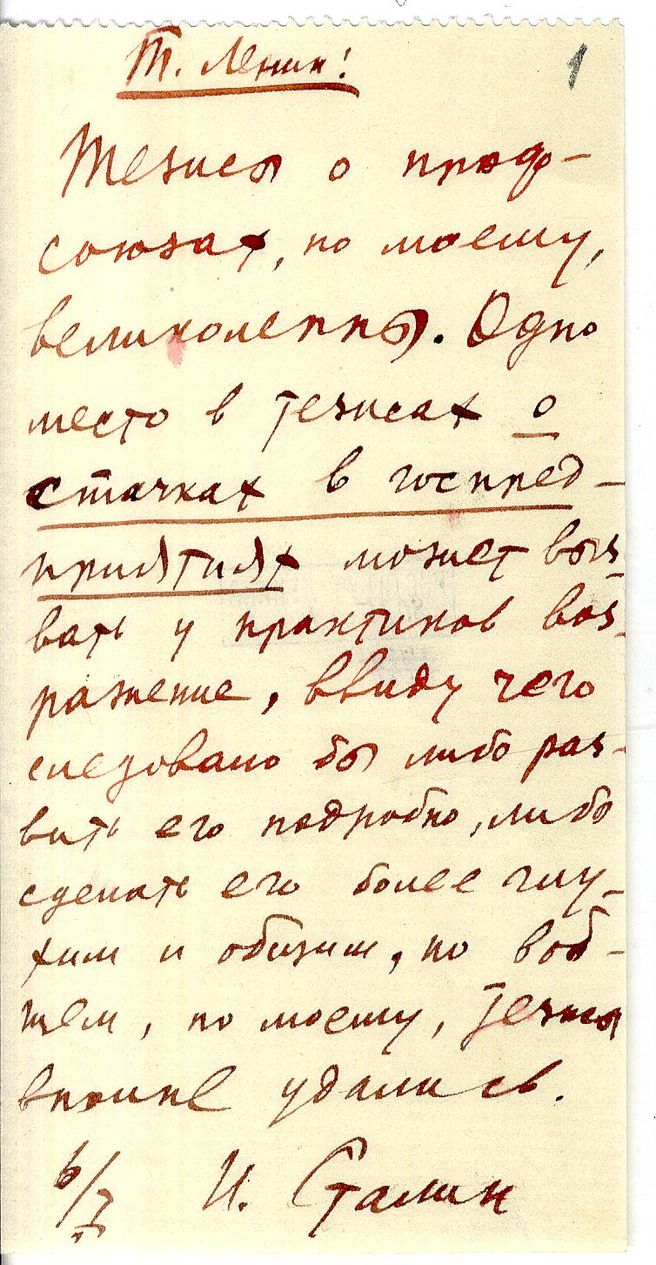 Т. Ленин!
1
Тезисы о проф-
союзах, по моему,
великолепны. Одно
место в тезисах о
стачках в госпред-
приятиях может выз-
вать у практиков воз-
ражение, ввиду чего
следовало бы либо раз-
вить его подробно, либо
сделать его более глу-
хим и общим, но вооб-
щем, по моему, тезисы
вполне удались.
И. Сталин